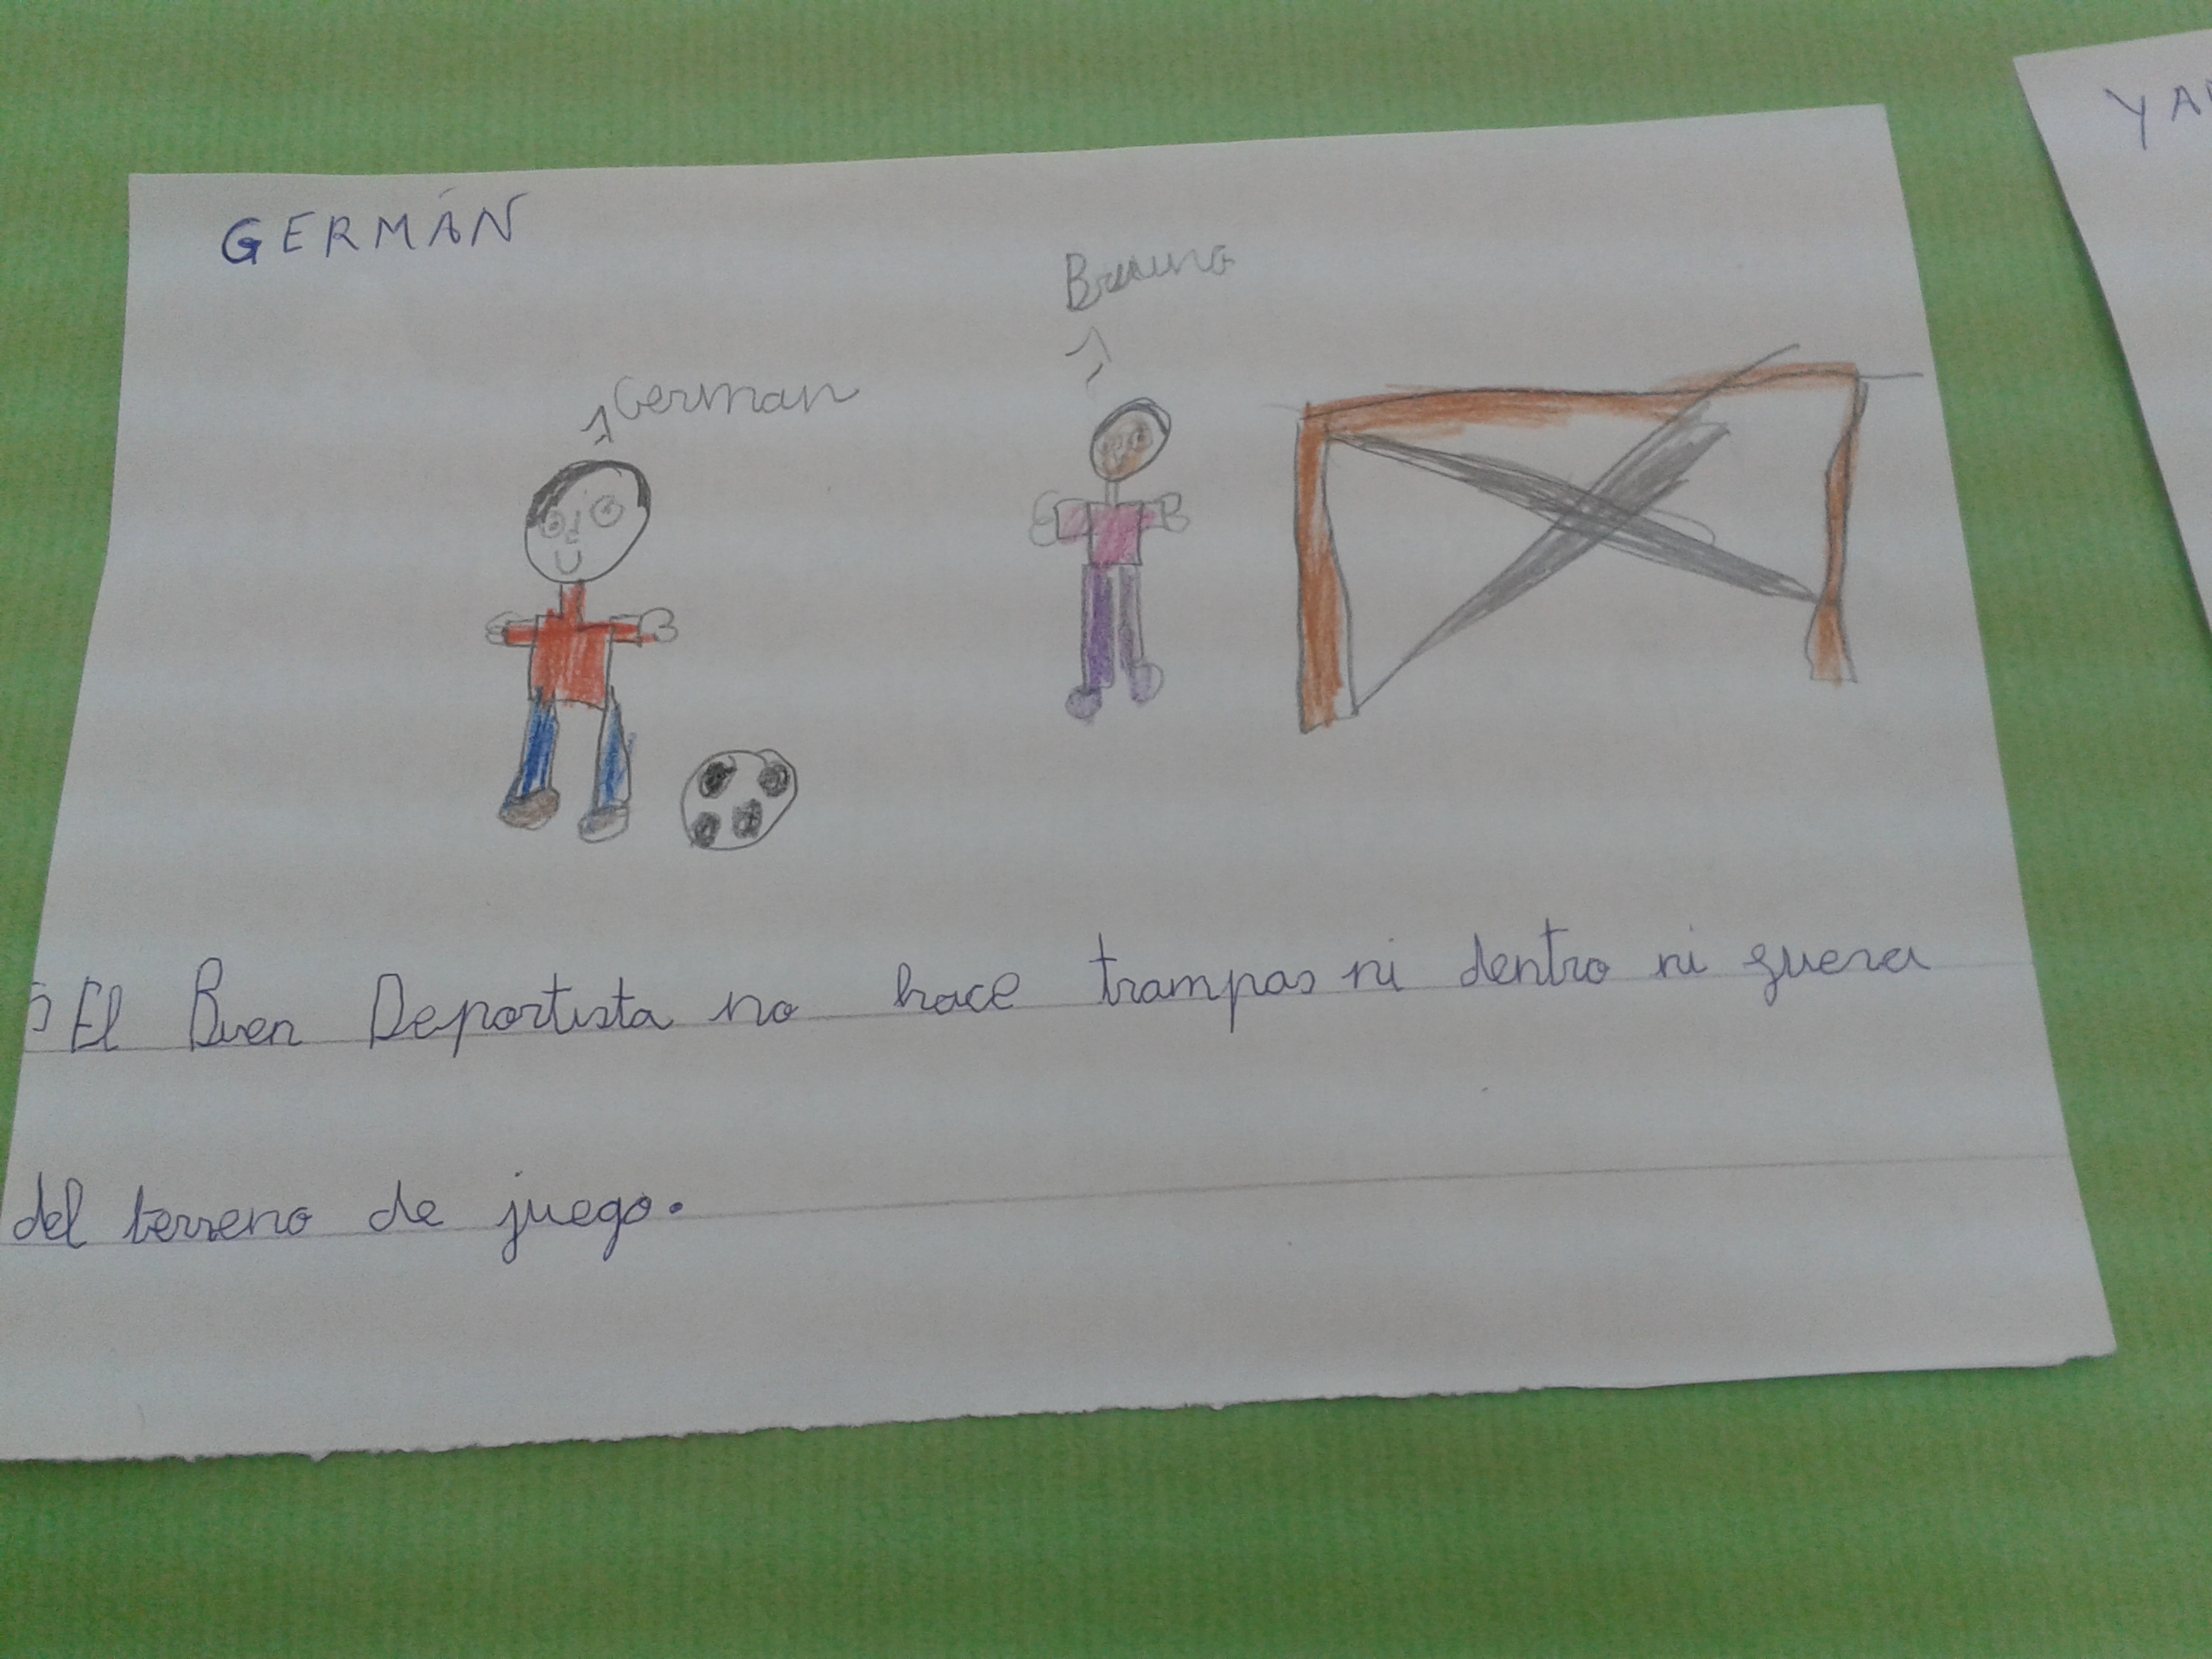 GERMÁN
YA
Bruno
German
El Buen Deportista no hace trampas ni dentro ni guera
del terreno de juego.